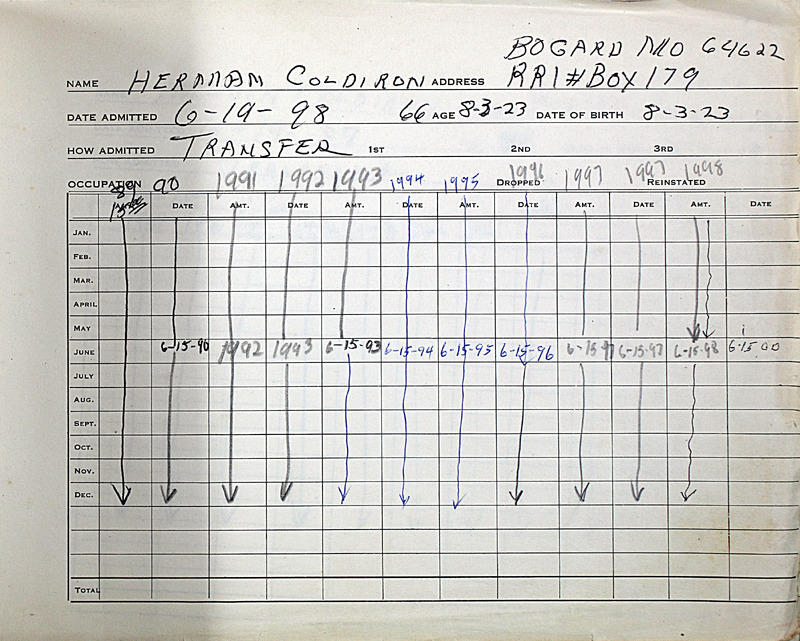 BOGARD MO 64622
NAME HERMAM COLDIRON ADDRESS RR1#BOX179
DATE ADMITTED 6-19-98 66 AGE 8-3-23 DATE OF BIRTH 8-3-23
HOW ADMITTED TRANSFER 1ST 2ND 3RD
OCCUPATION 89 90 1991 1992 1993 1994 1995 DROPPED 1996 1997 1997 REINSTATED 1998
DATE AMT. DATE AMT. DATE AMT. DATE AMT. DATE AMT. DATE
JAN.
FEB.
MAR.
APRIL
MAY
JUNE 6-15-90 1992 1993 6-15-93 6-15-94 6-15-95 6-15-96 6-15-97 6-15-97 6-15-98 6-15-00
JULY
AUG.
SEPT.
OCT.
NOV.
DEC.
TOTAL